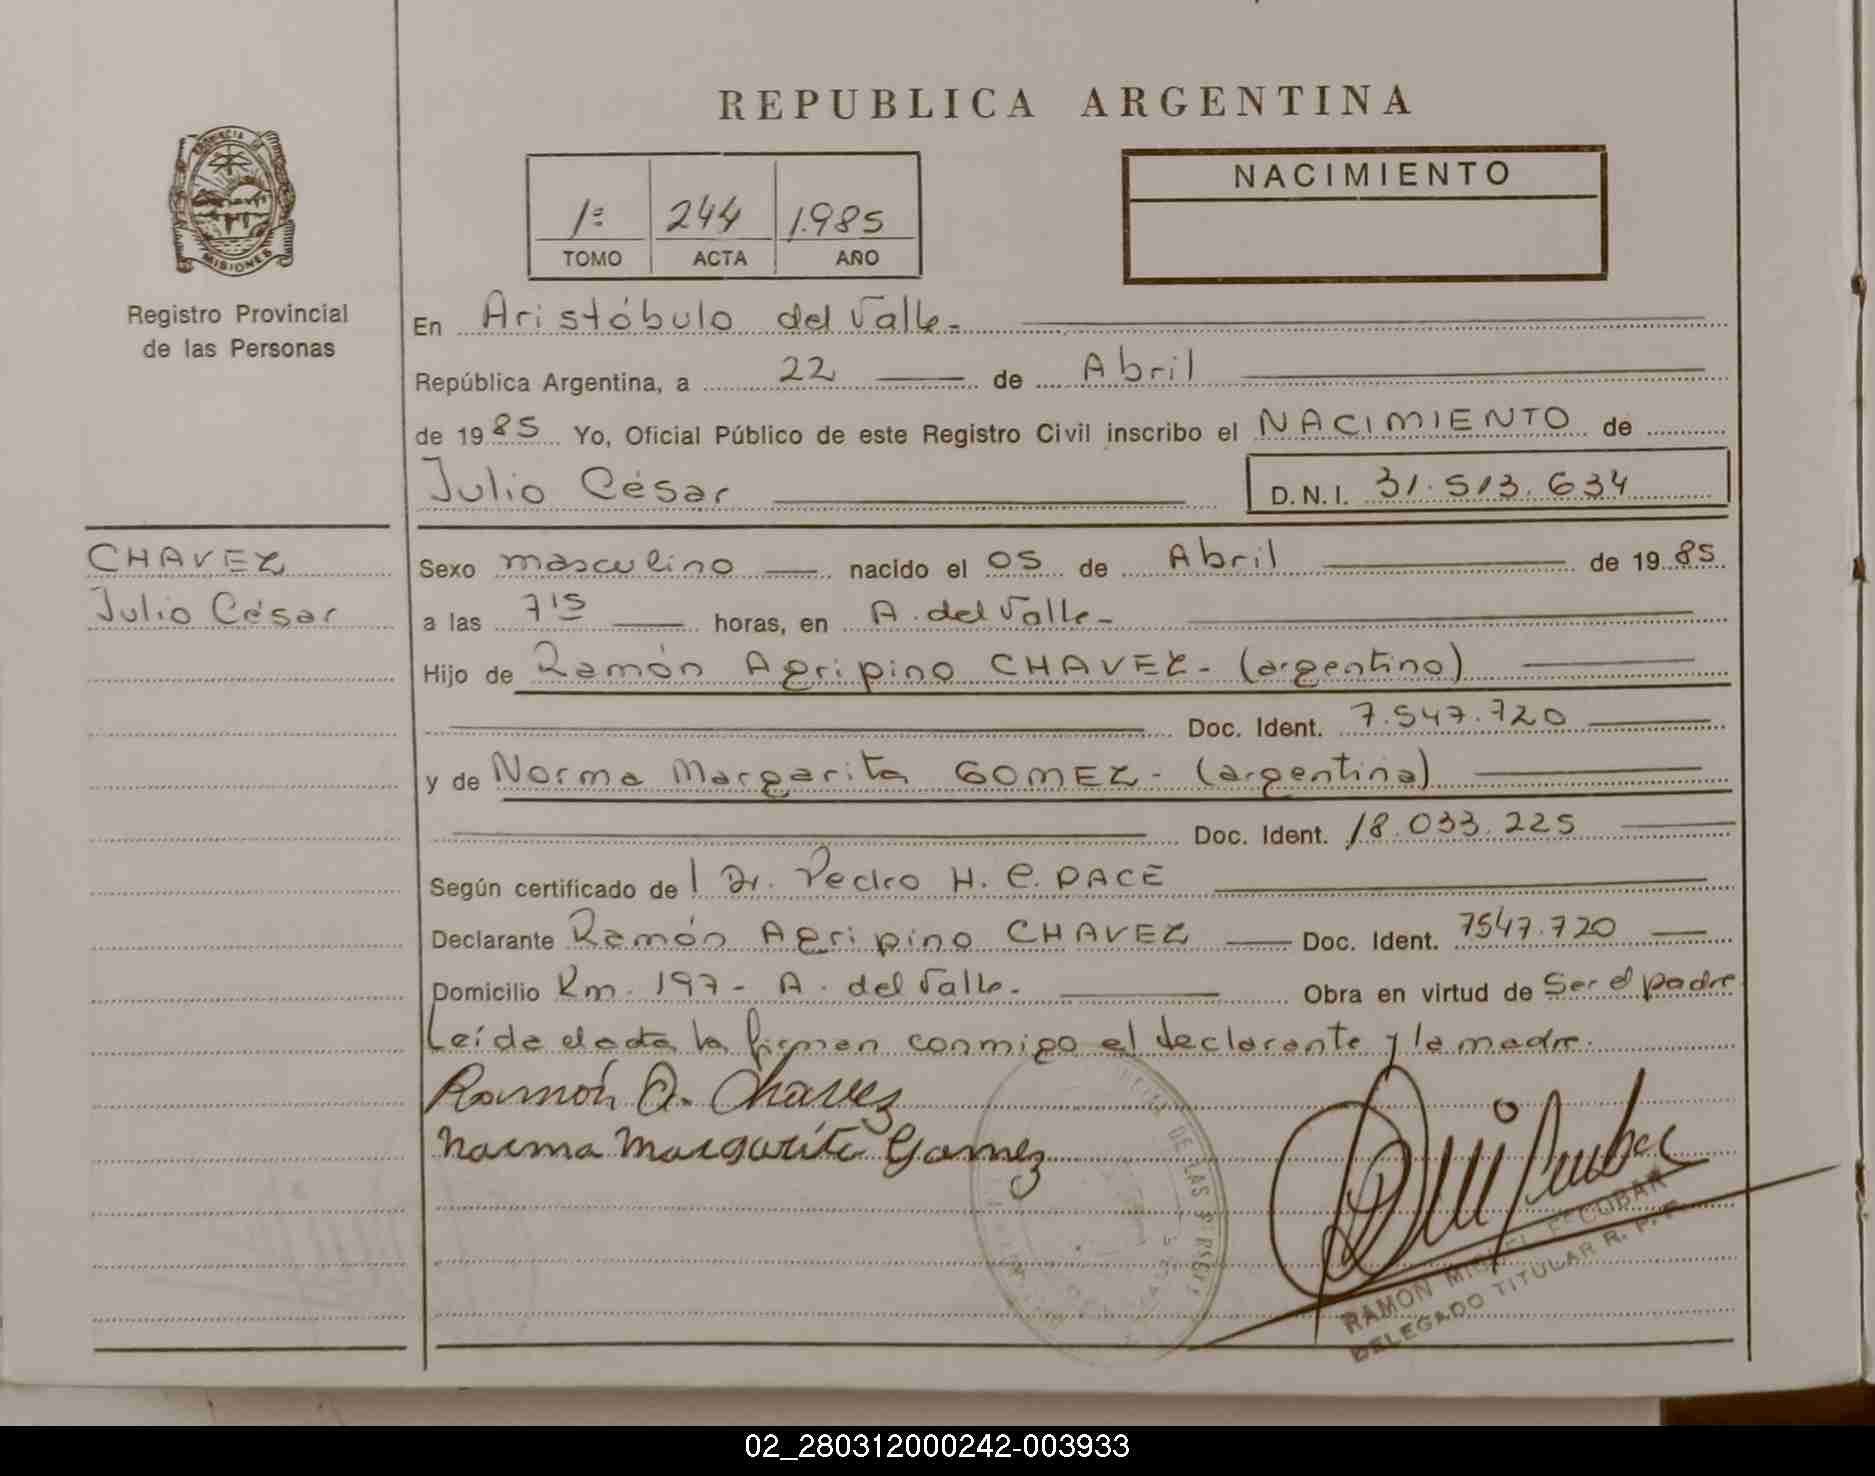 REPUBLICA ARGENTINA
PROVINCIA DE
MISIONES
Registro Provincial
de las Personas
1º 244 1.985
TOMO ACTA AÑO
NACIMIENTO
En Aristóbulo del Valle.-
República Argentina, a 22 de Abril
de 1985 Yo, Oficial Público de este Registro Civil inscribo el NACIMIENTO de
Julio César D.N.I. 31.513.634
CHAVEZ
Julio César
Sexo masculino nacido el 05 de Abril de 1985
a las 7 15 horas, en A. del Valle.-
Hijo de Ramón Agripino CHAVEZ - (argentino)
Doc. Ident. 7.547.720
y de Norma Margarita GOMEZ - (argentina)
Doc. Ident. 18.033.225
Según certificado de Dr. Pedro H. C. PACE
Declarante Ramón Agripino CHAVEZ Doc. Ident. 7547.720
Domicilio Km. 197 - A. del Valle. Obra en virtud de Ser el padre
Leída el acta la firman conmigo el declarante y la madre.
Ramón A. Chavez
Norma Margarita Gomez
DE LAS PERSONAS
RAMON MIGUEL ESCOBAR
DELEGADO TITULAR R. P. P.
02_280312000242-003933